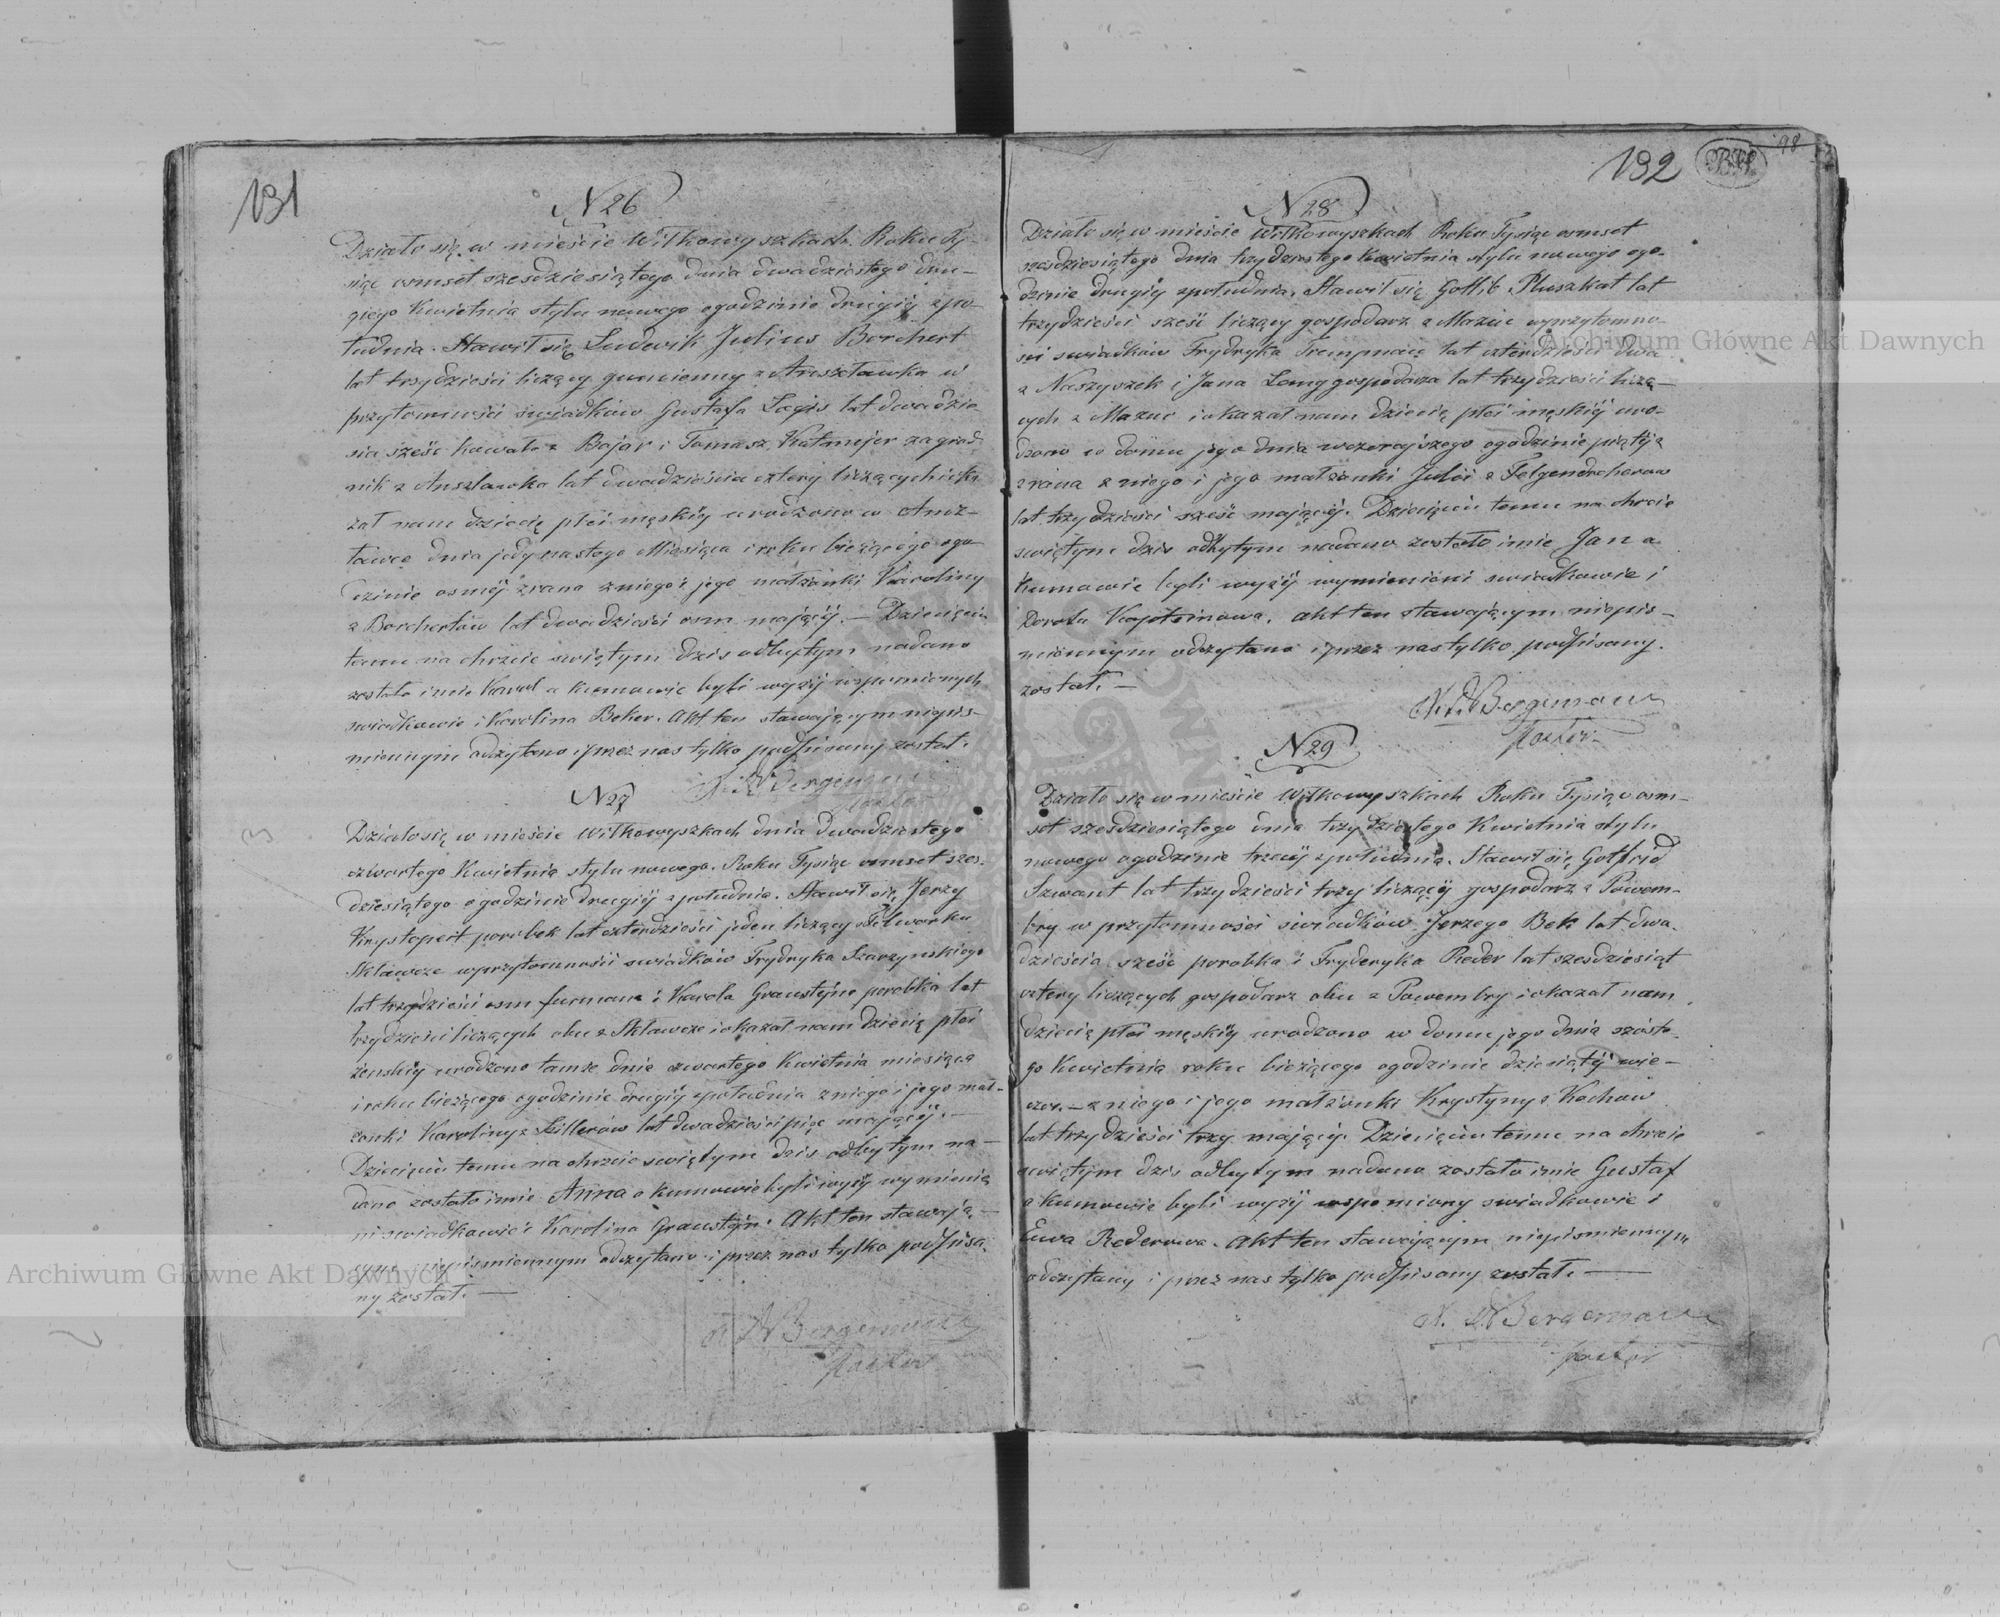 131
N 26
Działo się w mieście Wiłkowyszkach Roku Ty-
siąc osmset szesdziesiątego dnia dwadziestego dru-
giego Kwietnia stylu nowego ogodzinie drugiy zpo-
łudnia. Stawił się Ludevik Julius Borchert
lat trzydzieści liczący gumienny z w
przytomności swiadków Gustafa Logis lat dwadzie-
sia sześć z Bojar i Tomasz Katmejer zagrod-
nik z lat dwadzieścia cztery liczących i oka-
zał nam dziecię płci męskiy urodzono w
dnia jedynastego Miesiąca i roku bieżącego ogo-
dzinie osméj zrana zniego i jego małżonki Karoliny
z Borchertów lat dwadzieści osm mającéj. — Dziecięciu
temu na chrzcie swiętym dzis odbytym nadano
zostało imie Karol a kumowie byli wyżéj wspomionych
swiadkowie i Karolina Beker. Akt ten stawającym niepis-
miennym odczytano i przez nas tylko podpisany został.
Bergemann
Pastor
N 27
Działo się w mieście Wiłkowyszkach dnia dwadziestego
czwartego Kwietnia stylu nowego. Roku Tysiąc osmset szes-
dziesiątego ogodzinie drugiéj zpołudnia. Stawił się Jerzy
Krystopeit porobek lat czterdzieści jeden liczący z Folwarku
Skławcze wprzytomności swiadków Frydryka Szarzynskiego
lat trzydzieści osm furmana i Karola Graustejna porobka lat
trzydzieści liczących obu z Skławcze i okazał nam dziecię płci
żenskiéj urodzono tamze dnia czwartego Kwietnia miesiąca
i roku bieżącego ogodzinie drugiéj zpołudnia zniego i jego mał-
żonki Karoliny z Lillerów lat dwadzieści pięc mającéj. —
Dziecięciu temu na chrzcie swiętym dzis odbytym na-
dano zostało imie Anna a kumowie byli wyżéj wymienie-
ni swiadkowie i Karolina Graustejn. Akt ten stawają-
cym niepismiennym odczytano i przez nas tylko podpisa-
ny został. —
Bergemann
Pastor
132
98
N 28
Działo się w mieście Wiłkowyszkach Roku Tysiąc osmset
szesdziesiątego dnia trzydziestego Kwietnia stylu nowego ogo-
dzinie drugiéj zpołudnia. Stawił się Gotlib Pluszkat lat
trzydzieści sześć liczący gospodarz z Mazuc wprzytomno-
ści swiadków Frydryka lat czterdzieści dwa
z Naszyszek i Jana gospodarza lat trzydzieści liczą-
cych z Mazuc i okazał nam dziecię płci męskiéj uro-
dzono w domu jego dnia wczorajszego ogodzinie piątéj
zrana z niego i jego małżonki Julii z
lat trzydzieści sześć mającéj. Dziecięciu temu na chrzcie
swiętym dzis odbytym nadano zostało imie Jan a
kumowie byli wyżéj wymienieni swiadkowie i
Dorota Kapteinowa. Akt ten stawającym niepis-
miennym odczytano i przez nas tylko podpisany
został. —
Bergemann
Pastor
N 29
Działo się w mieście Wiłkowyszkach Roku Tysiąc osm-
set szesdziesiątego dnia trzydziestego Kwietnia stylu
nowego ogodzinie trzeciéj zpołudnia. Stawił się Gotfryd
Szwant lat trzydzieści trzy liczący gospodarz z Powem-
bry w przytomności swiadków Jerzego Bek lat dwa-
dzieścia sześć porobka i Fryderyka Reder lat szesdziesiąt
cztery liczących gospodarz obu z Powembry i okazał nam
dziecię płci męskiéj urodzono w domu jego dnia szóste-
go Kwietnia roku bieżącego ogodzinie dziesiątéj wie-
czor. — z niego i jego małżonki Krystyny z Kochów
lat trzydzieści trzy mającéj. Dziecięciu temu na chrzcie
swiętym dzis odbytym nadano zostało imie Gustaf
a kumowie byli wyżéj wspomiony swiadkowie i
Ewa Rederowa. Akt ten stawającym niepismiennym
odczytany i przez nas tylko podpisany został. —
Bergemann
Pastor
Archiwum Główne Akt Dawnych
Archiwum Główne Akt Dawnych